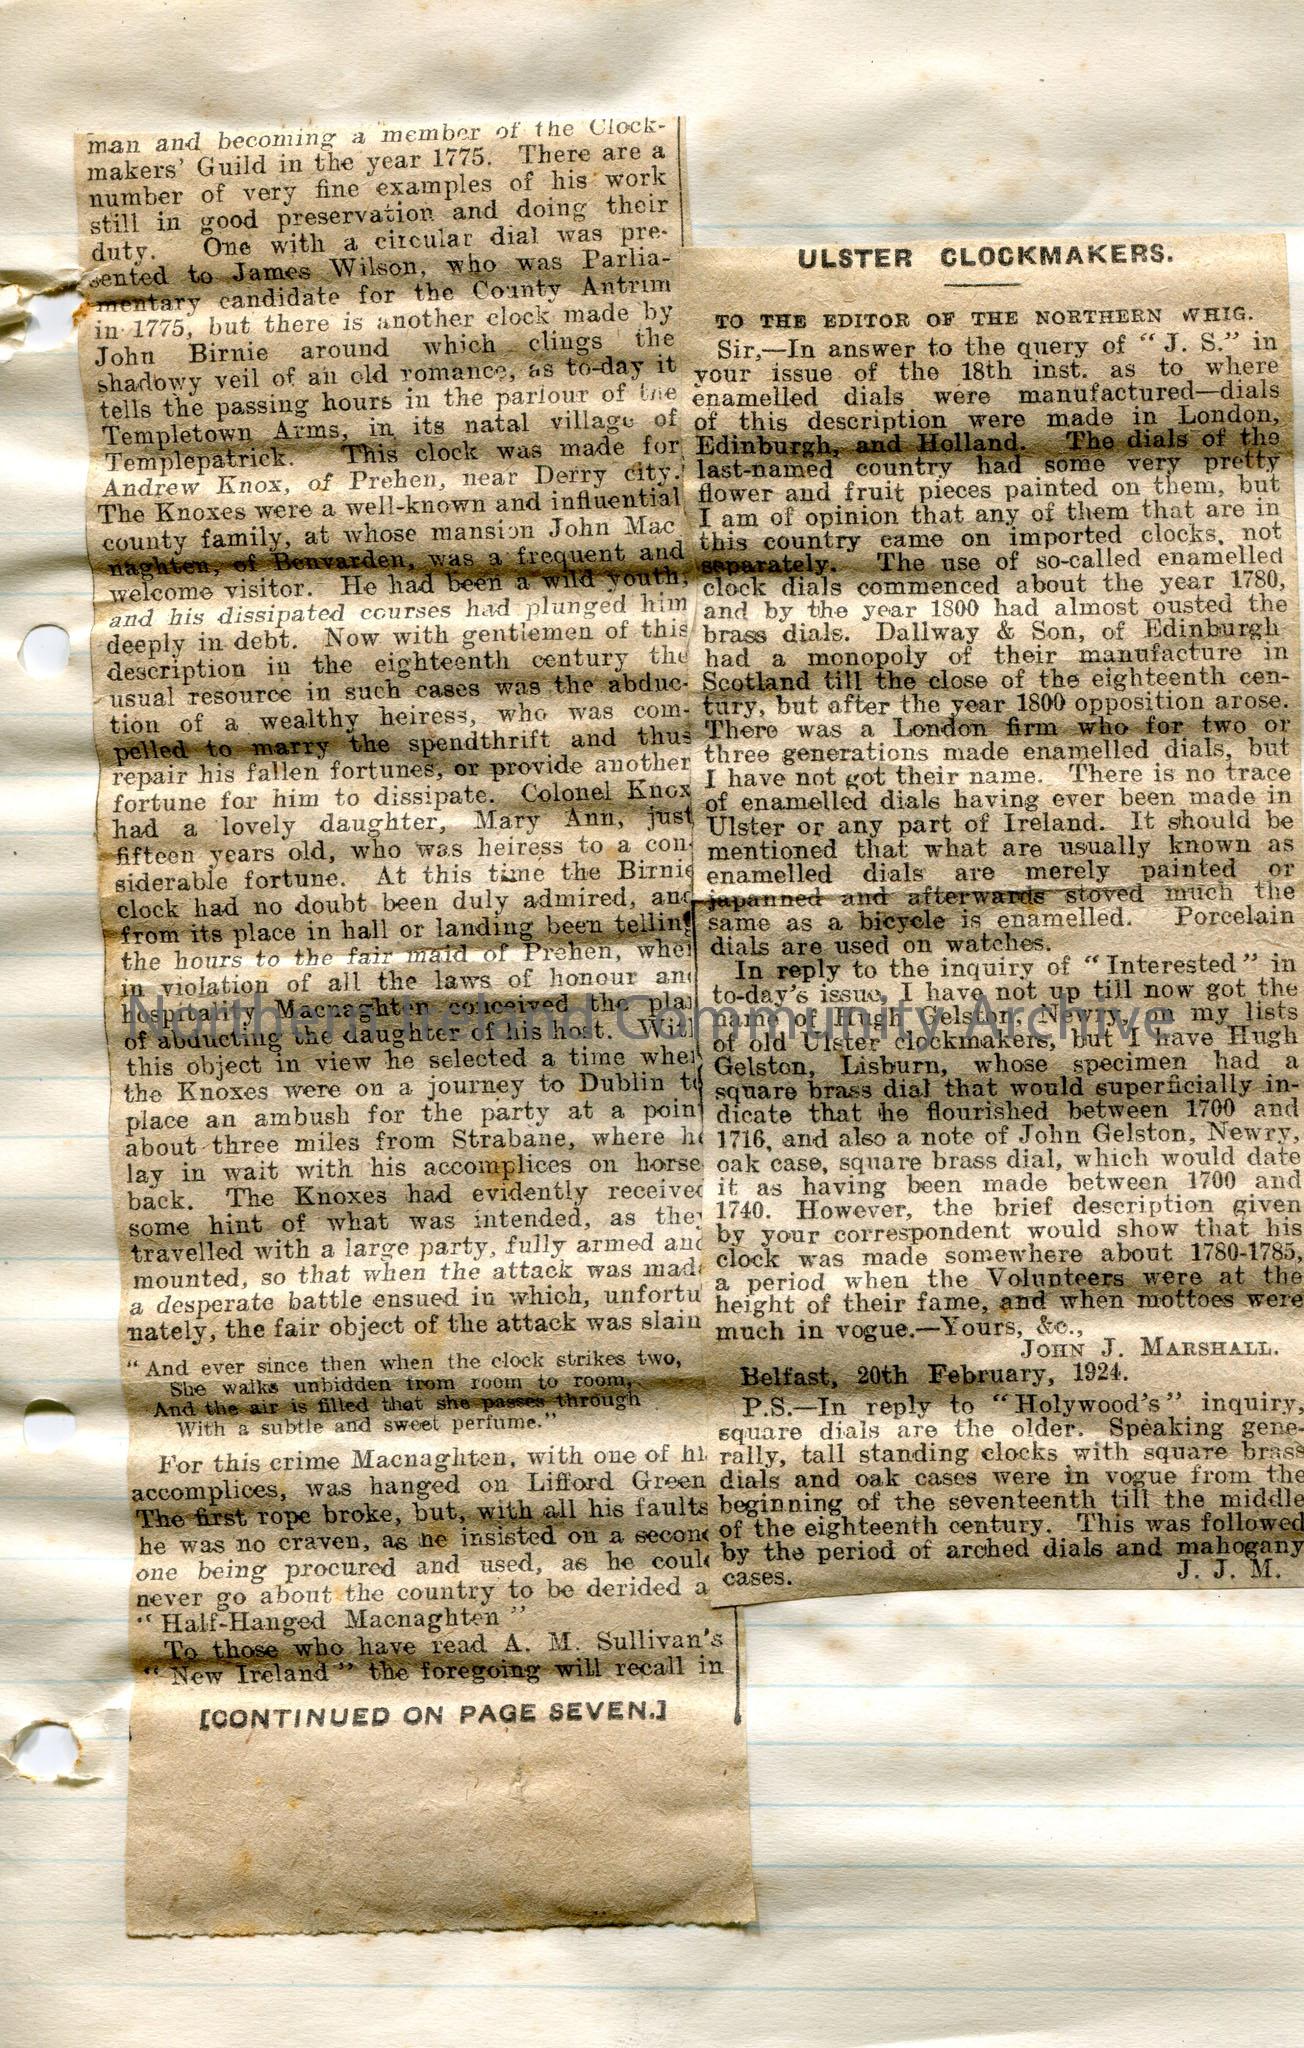 man and becoming a member of the Clock-
makers' Guild in the year 1775. There are a
number of very fine examples of his work
still in good preservation and doing their
duty. One with a circular dial was pre-
sented to James Wilson, who was Parlia-
mentary candidate for the County Antrim
in 1775, but there is another clock made by
John Birnie around which clings the
shadowy veil of an old romance, as to-day it
tells the passing hours in the parlour of the
Templetown Arms, in its natal village of
Templepatrick. This clock was made for
Andrew Knox, of Prehen, near Derry city.
The Knoxes were a well-known and influential
county family, at whose mansion John Mac
naghten, of Benvarden, was a frequent and
welcome visitor. He had been a wild youth,
and his dissipated courses had plunged him
deeply in debt. Now with gentlemen of this
description in the eighteenth century the
usual resource in such cases was the abduc-
tion of a wealthy heiress, who was com-
pelled to marry the spendthrift and thus
repair his fallen fortunes, or provide another
fortune for him to dissipate. Colonel Knox
had a lovely daughter, Mary Ann, just
fifteen years old, who was heiress to a con-
siderable fortune. At this time the Birnie
clock had no doubt been duly admired, and
from its place in hall or landing been telling
the hours to the fair maid of Prehen, when
in violation of all the laws of honour and
hospitality Macnaghten conceived the plan
of abducting the daughter of his host. With
this object in view he selected a time when
the Knoxes were on a journey to Dublin to
place an ambush for the party at a point
about three miles from Strabane, where he
lay in wait with his accomplices on horse
back. The Knoxes had evidently received
some hint of what was intended, as they
travelled with a large party, fully armed and
mounted, so that when the attack was made
a desperate battle ensued in which, unfortu
nately, the fair object of the attack was slain
"And ever since then when the clock strikes two,
She walks unbidden from room to room,
And the air is filled that she passes through
With a subtle and sweet perfume."
For this crime Macnaghten, with one of hi
accomplices, was hanged on Lifford Green
The first rope broke, but, with all his faults
he was no craven, as he insisted on a second
one being procured and used, as he could
never go about the country to be derided a
"Half-Hanged Macnaghten"
To those who have read A. M. Sullivan's
"New Ireland" the foregoing will recall in
[CONTINUED ON PAGE SEVEN.]
ULSTER CLOCKMAKERS.
TO THE EDITOR OF THE NORTHERN WHIG.
Sir,—In answer to the query of "J. S." in
your issue of the 18th inst. as to where
enamelled dials were manufactured—dials
of this description were made in London,
Edinburgh, and Holland. The dials of the
last-named country had some very pretty
flower and fruit pieces painted on them, but
I am of opinion that any of them that are in
this country came on imported clocks, not
separately. The use of so-called enamelled
clock dials commenced about the year 1780,
and by the year 1800 had almost ousted the
brass dials. Dallway & Son, of Edinburgh
had a monopoly of their manufacture in
Scotland till the close of the eighteenth cen-
tury, but after the year 1800 opposition arose.
There was a London firm who for two or
three generations made enamelled dials, but
I have not got their name. There is no trace
of enamelled dials having ever been made in
Ulster or any part of Ireland. It should be
mentioned that what are usually known as
enamelled dials are merely painted or
japanned and afterwards stoved much the
same as a bicycle is enamelled. Porcelain
dials are used on watches.
In reply to the inquiry of "Interested" in
to-day's issue, I have not up till now got the
name of Hugh Gelston, Newry, on my lists
of old Ulster clockmakers, but I have Hugh
Gelston, Lisburn, whose specimen had a
square brass dial that would superficially in-
dicate that he flourished between 1700 and
1716, and also a note of John Gelston, Newry,
oak case, square brass dial, which would date
it as having been made between 1700 and
1740. However, the brief description given
by your correspondent would show that his
clock was made somewhere about 1780-1785,
a period when the Volunteers were at the
height of their fame, and when mottoes were
much in vogue.—Yours, &c.,
JOHN J. MARSHALL.
Belfast, 20th February, 1924.
P.S.—In reply to "Holywood's" inquiry,
square dials are the older. Speaking gene-
rally, tall standing clocks with square brass
dials and oak cases were in vogue from the
beginning of the seventeenth till the middle
of the eighteenth century. This was followed
by the period of arched dials and mahogany
cases. J. J. M.
Northern Ireland Community Archive